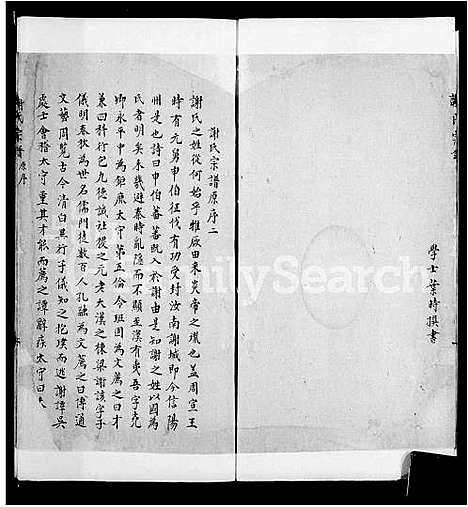 學士葉時撰書
謝氏宗譜原序二
謝氏之姓從何始乎雅厥由來炎帝之裔也盖周宣王
時有元舅申伯徃伐有功受封汝南謝城即今信陽
州是也詩曰申伯蕃蕃既入於謝由是知謝之姓以國為
氏者明矣未幾避秦時亂隱而不顯至漢有夷吾字堯
卿永平中為鉅鹿太守第五倫令班固為文薦之曰才
兼四科行包九德誠社稷之元老大漢之棟梁謝該字子
儀明春秋為世名儒門徒數百人孔融為文薦之曰博通
文藝周覧古今清白異行子儀知之抱璞而逃謝譚吳
處士會稽太守重其才能而薦之譚辭疾太守曰夫
謝氏宗譜 原序
FamilySearch